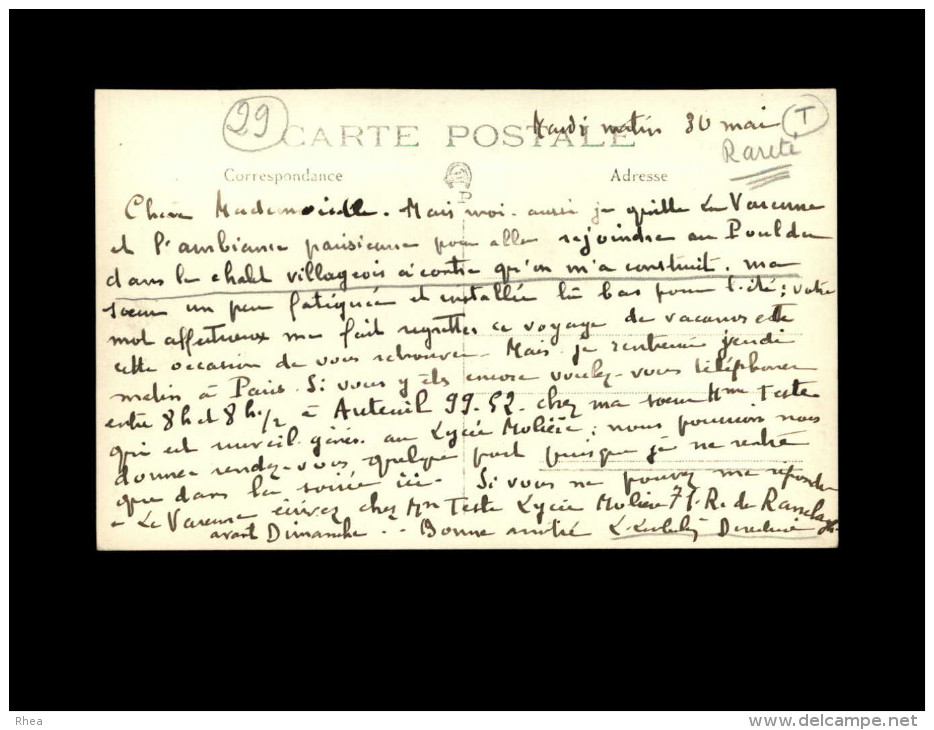 29
Mardi matin 30 mai
T
CARTE POSTALE
Rareté
Correspondance
Adresse
Chère Mademoiselle. Mais moi aussi je quitte La Varenne
et l'ambiance parisienne pour aller rejoindre au Pouldu
dans le chalet villageois ci contre qu'on m'a construit. ma
soeur un peu fatiguée et installée là bas pour l'été; votre
mot affectueux me fait regretter ce voyage de vacances
cette occasion de vous retrouver. Mais je rentrerai jeudi
matin à Paris. Si vous y êtes encore voulez-vous téléphoner
entre 8h et 8h 1/2 à Auteuil 99.52. chez ma soeur Mme Teste
qui est au Lycée Molière; nous pourrons nous
donner rendez-vous quelque part puisque je ne rentre
que dans la soirée ici. Si vous ne pouvez me répondre
à La Varenne écrivez chez Mme Teste Lycée Molière 71. R. de Ranelagh
avant Dimanche. Bonne amitié
Rhea
www.delcampe.net